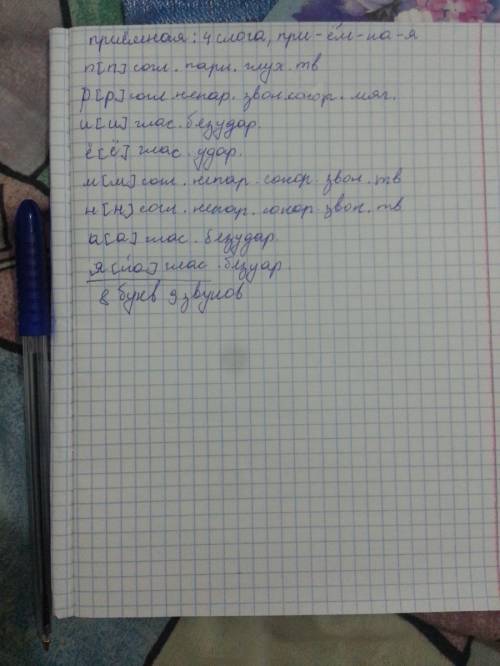 приёмная: 4 слога, при-ём-на-я
п[п] согл. парн. глух. тв
р[р] согл. непар. звон. сонор. мяг.
и[и] глас. безудар.
ё[ё] глас. удар.
м[м] согл. непар. сонор. звон. тв
н[н] согл. непар. сонор. звон. тв
а[а] глас. безудар.
я[йа] глас. безуар.
8 букв 9 звуков